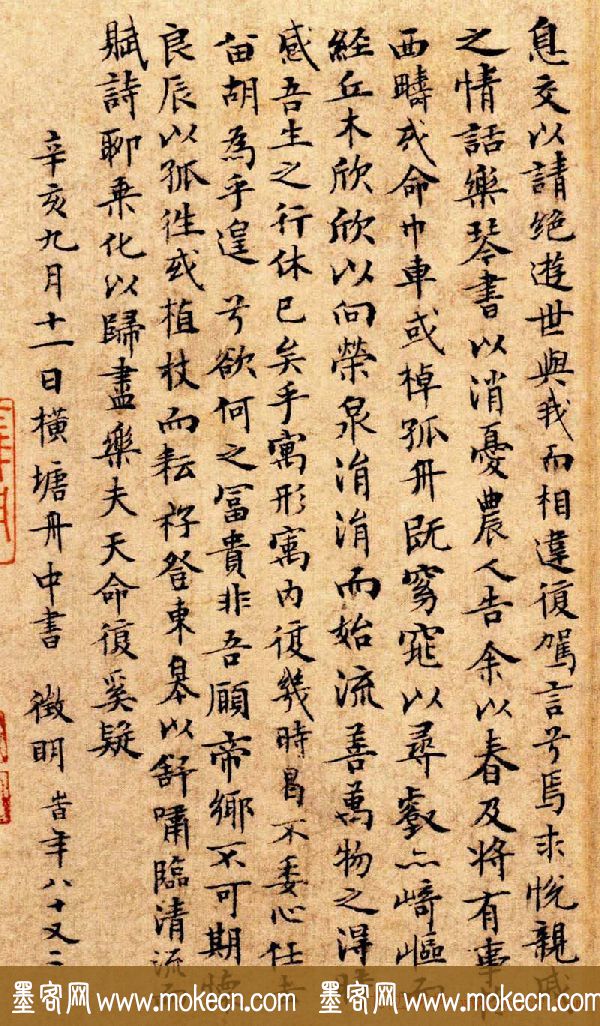 息交以請絕遊世與我而相違復駕言兮焉求悅親戚
之情話樂琴書以消憂農人告余以春及將有事
西疇或命巾車或棹孤舟既窈窕以尋壑亦崎嶇而
經丘木欣欣以向榮泉涓涓而始流善萬物之得時
感吾生之行休已矣乎寓形寓內復幾時曷不委心任去
留胡為乎遑兮欲何之冨貴非吾願帝鄉不可期懷
良辰以孤往或植杖而耘耔登東皋以舒嘯臨清流而
賦詩聊乘化以歸盡樂夫天命復奚疑
辛亥九月十一日橫塘舟中書 徵明 昔年八十又二
墨客网 www.mokecn.com 墨客网 www.mokecn.com